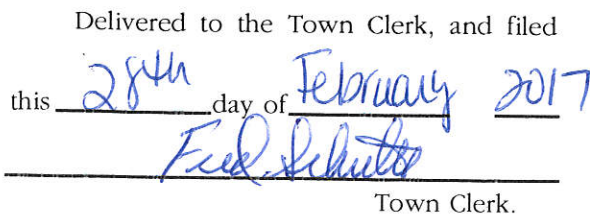 Delivered to the Town Clerk, and filed
this 28th day of February 2017
Fred Schulte
Town Clerk.